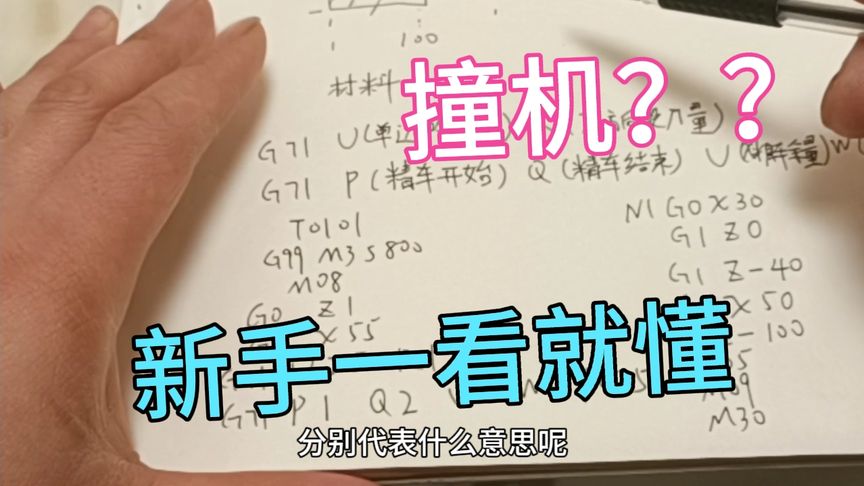 1 100
材料
撞机？？
G71 U(单边
量)
G71 P(精车开始) Q(精车结束) U
T0101
G99 M3 S800
M08
G0 Z1
X55
P1 Q2
N1 G0 X30
G1 Z0
G1 Z-40
X50
-100
M30
新手一看就懂
分别代表什么意思呢